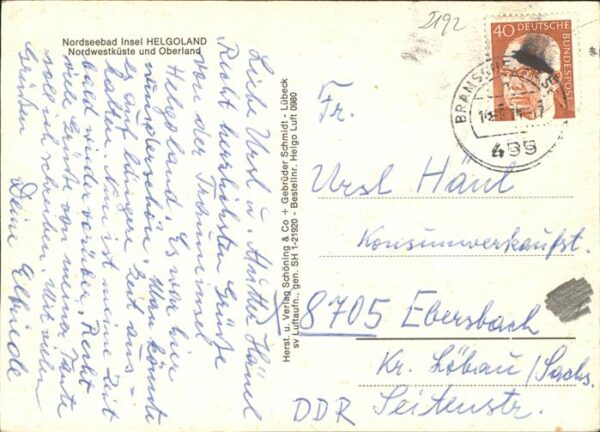 Nordseebad Insel HELGOLAND
Nordwestküste und Oberland
Liebe Ursl u. Mutter Hänel
Recht herzlichsten Grüße
von der Trauminsel
Helgoland. Es war hier
wunderschön. Man könnte
es auf längere Zeit aus-
halten. Nun ist meine Zeit
bald wieder vorüber. Recht
viele Grüße von meiner Tante
soll ich schreiben. Mit vielen
Grüßen
Deine Elfriede
Herst. u. Verlag Schöning & Co + Gebrüder Schmidt - Lübeck
sv Luftaufn., gen. SH 1-21920 - Bestellnr. Helgo Luft 0980
2192
40
DEUTSCHE
BUNDESPOST
499
Fr.
Ursl Hänl
Konsumverkaufst.
X 8705 Ebersbach
Kr. Löbau/Sachs.
DDR Seitenstr.